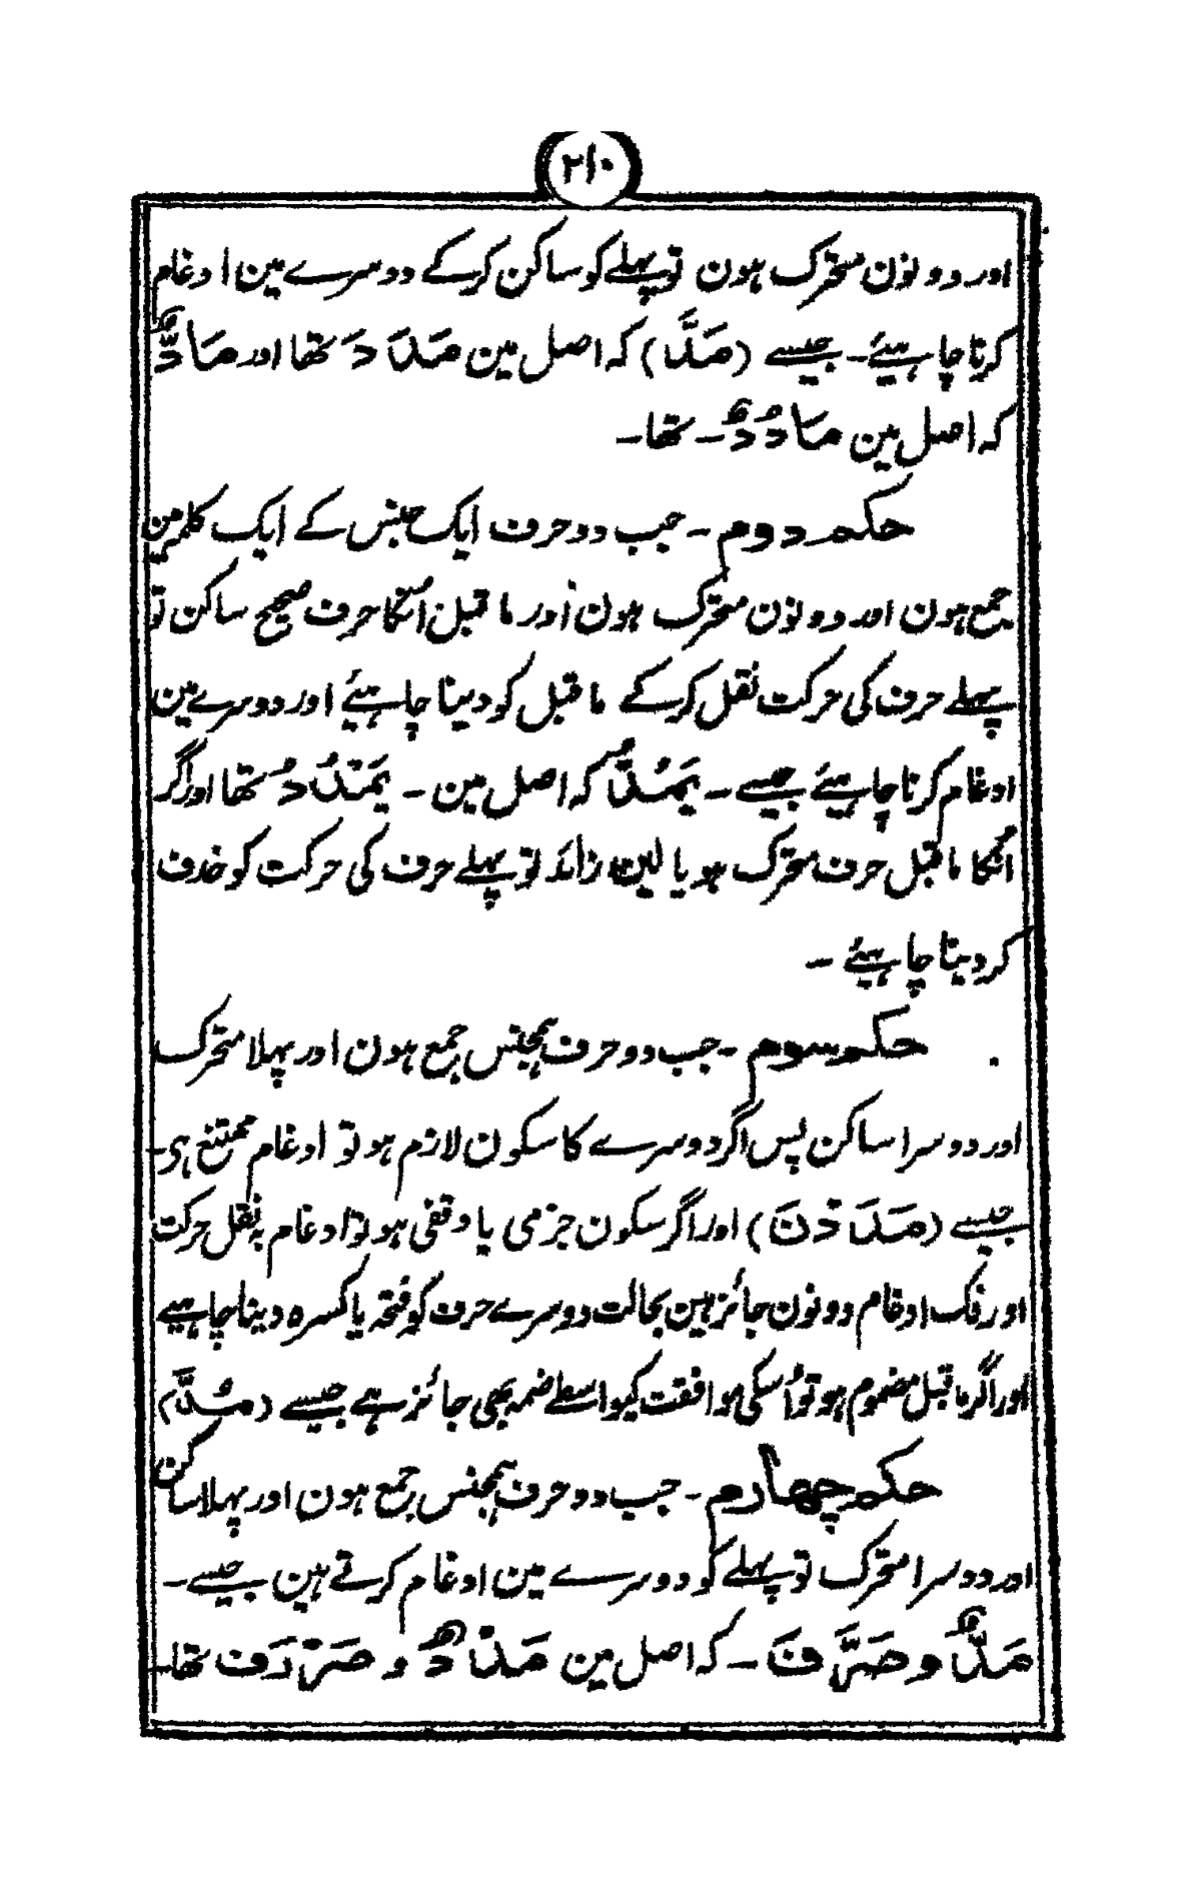 ۲۱۰
اور دونون متحرک ہون تو پہلے کو ساکن کرکے دوسرے مین ادغام
کرنا چاہیئے۔ جیسے (مَدَّ) کہ اصل مین مَدَدَ تھا اور مَادٌّ
کہ اصل مین مَادُدٌ۔ تھا۔
حکم دوم ۔ جب دو حرف ایک جنس کے ایک کلمہ مین
جمع ہون اور دونون متحرک ہون اور ما قبل اُنکا حرف صحیح ساکن تو
پہلے حرف کی حرکت نقل کرکے ما قبل کو دینا چاہیئے اور دوسرے مین
ادغام کرنا چاہیئے جیسے ۔ یَمُدُّ کہ اصل مین ۔ یَمْدُدُ تھا اور اگر
اُنکا ما قبل حرف متحرک ہو یا لین زائد تو پہلے حرف کی حرکت کو حذف
کر دینا چاہیئے ۔
حکم سوم ۔ جب دو حرف ہمجنس جمع ہون اور پہلا متحرک
اور دوسرا ساکن پس اگر دوسرے کا سکون لازم ہو تو ادغام ممتنع ہی۔
جیسے (مَدَدْنَ) اور اگر سکون جزمی یا وقفی ہو تو ادغام بہ نقل حرکت
اور فک ادغام دونون جائز ہین بحالت دوسرے حرف کو فتحہ یا کسرہ دینا چاہیے
اور اگر ما قبل مضموم ہو تو اُسکی موافقت کیواسطے ضمہ بھی جائز ہے جیسے (مُدَّ)
حکم چہارم ۔ جب دو حرف ہمجنس جمع ہون اور پہلا ساکن
اور دوسرا متحرک تو پہلے کو دوسرے مین ادغام کرتے ہین جیسے ۔
مَدٌّ و صَرَّفَ ۔ کہ اصل مین مَدْدٌ و صَرْرَفَ تھا۔